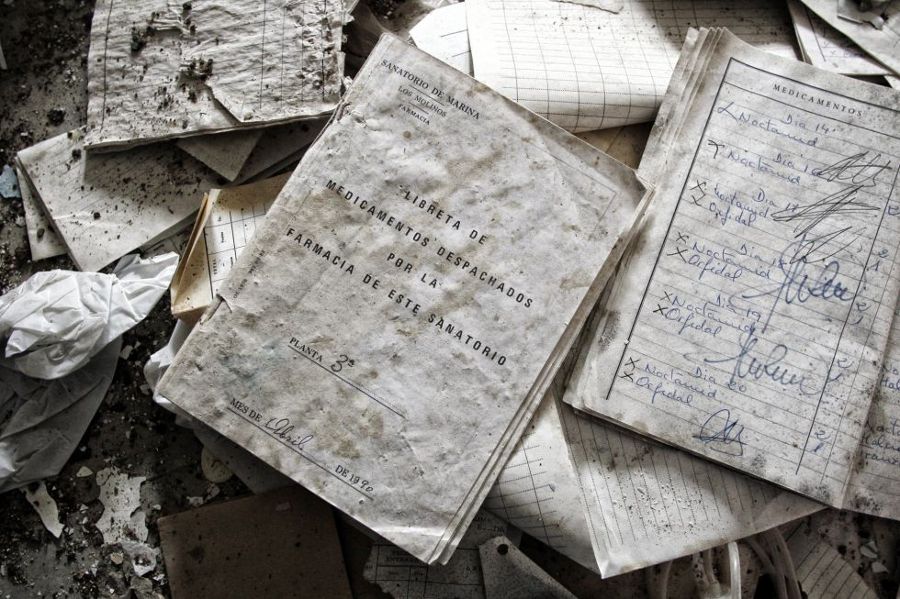 SANATORIO DE MARINA
LOS MOLINOS
FARMACIA
LIBRETA DE
MEDICAMENTOS DESPACHADOS
POR LA
FARMACIA DE ESTE SANATORIO
PLANTA 3ª
MES DE Abril DE 1990
MEDICAMENTOS
Dia 14
Noctamid
Dia 1
Noctamid
Dia 17
Noctamid
Orfidal
Dia 1
Noctamid 2
Orfidal 2
Dia 19
Noctamid 2
Orfidal 2
Dia 20
Noctamid 2
Orfidal 2